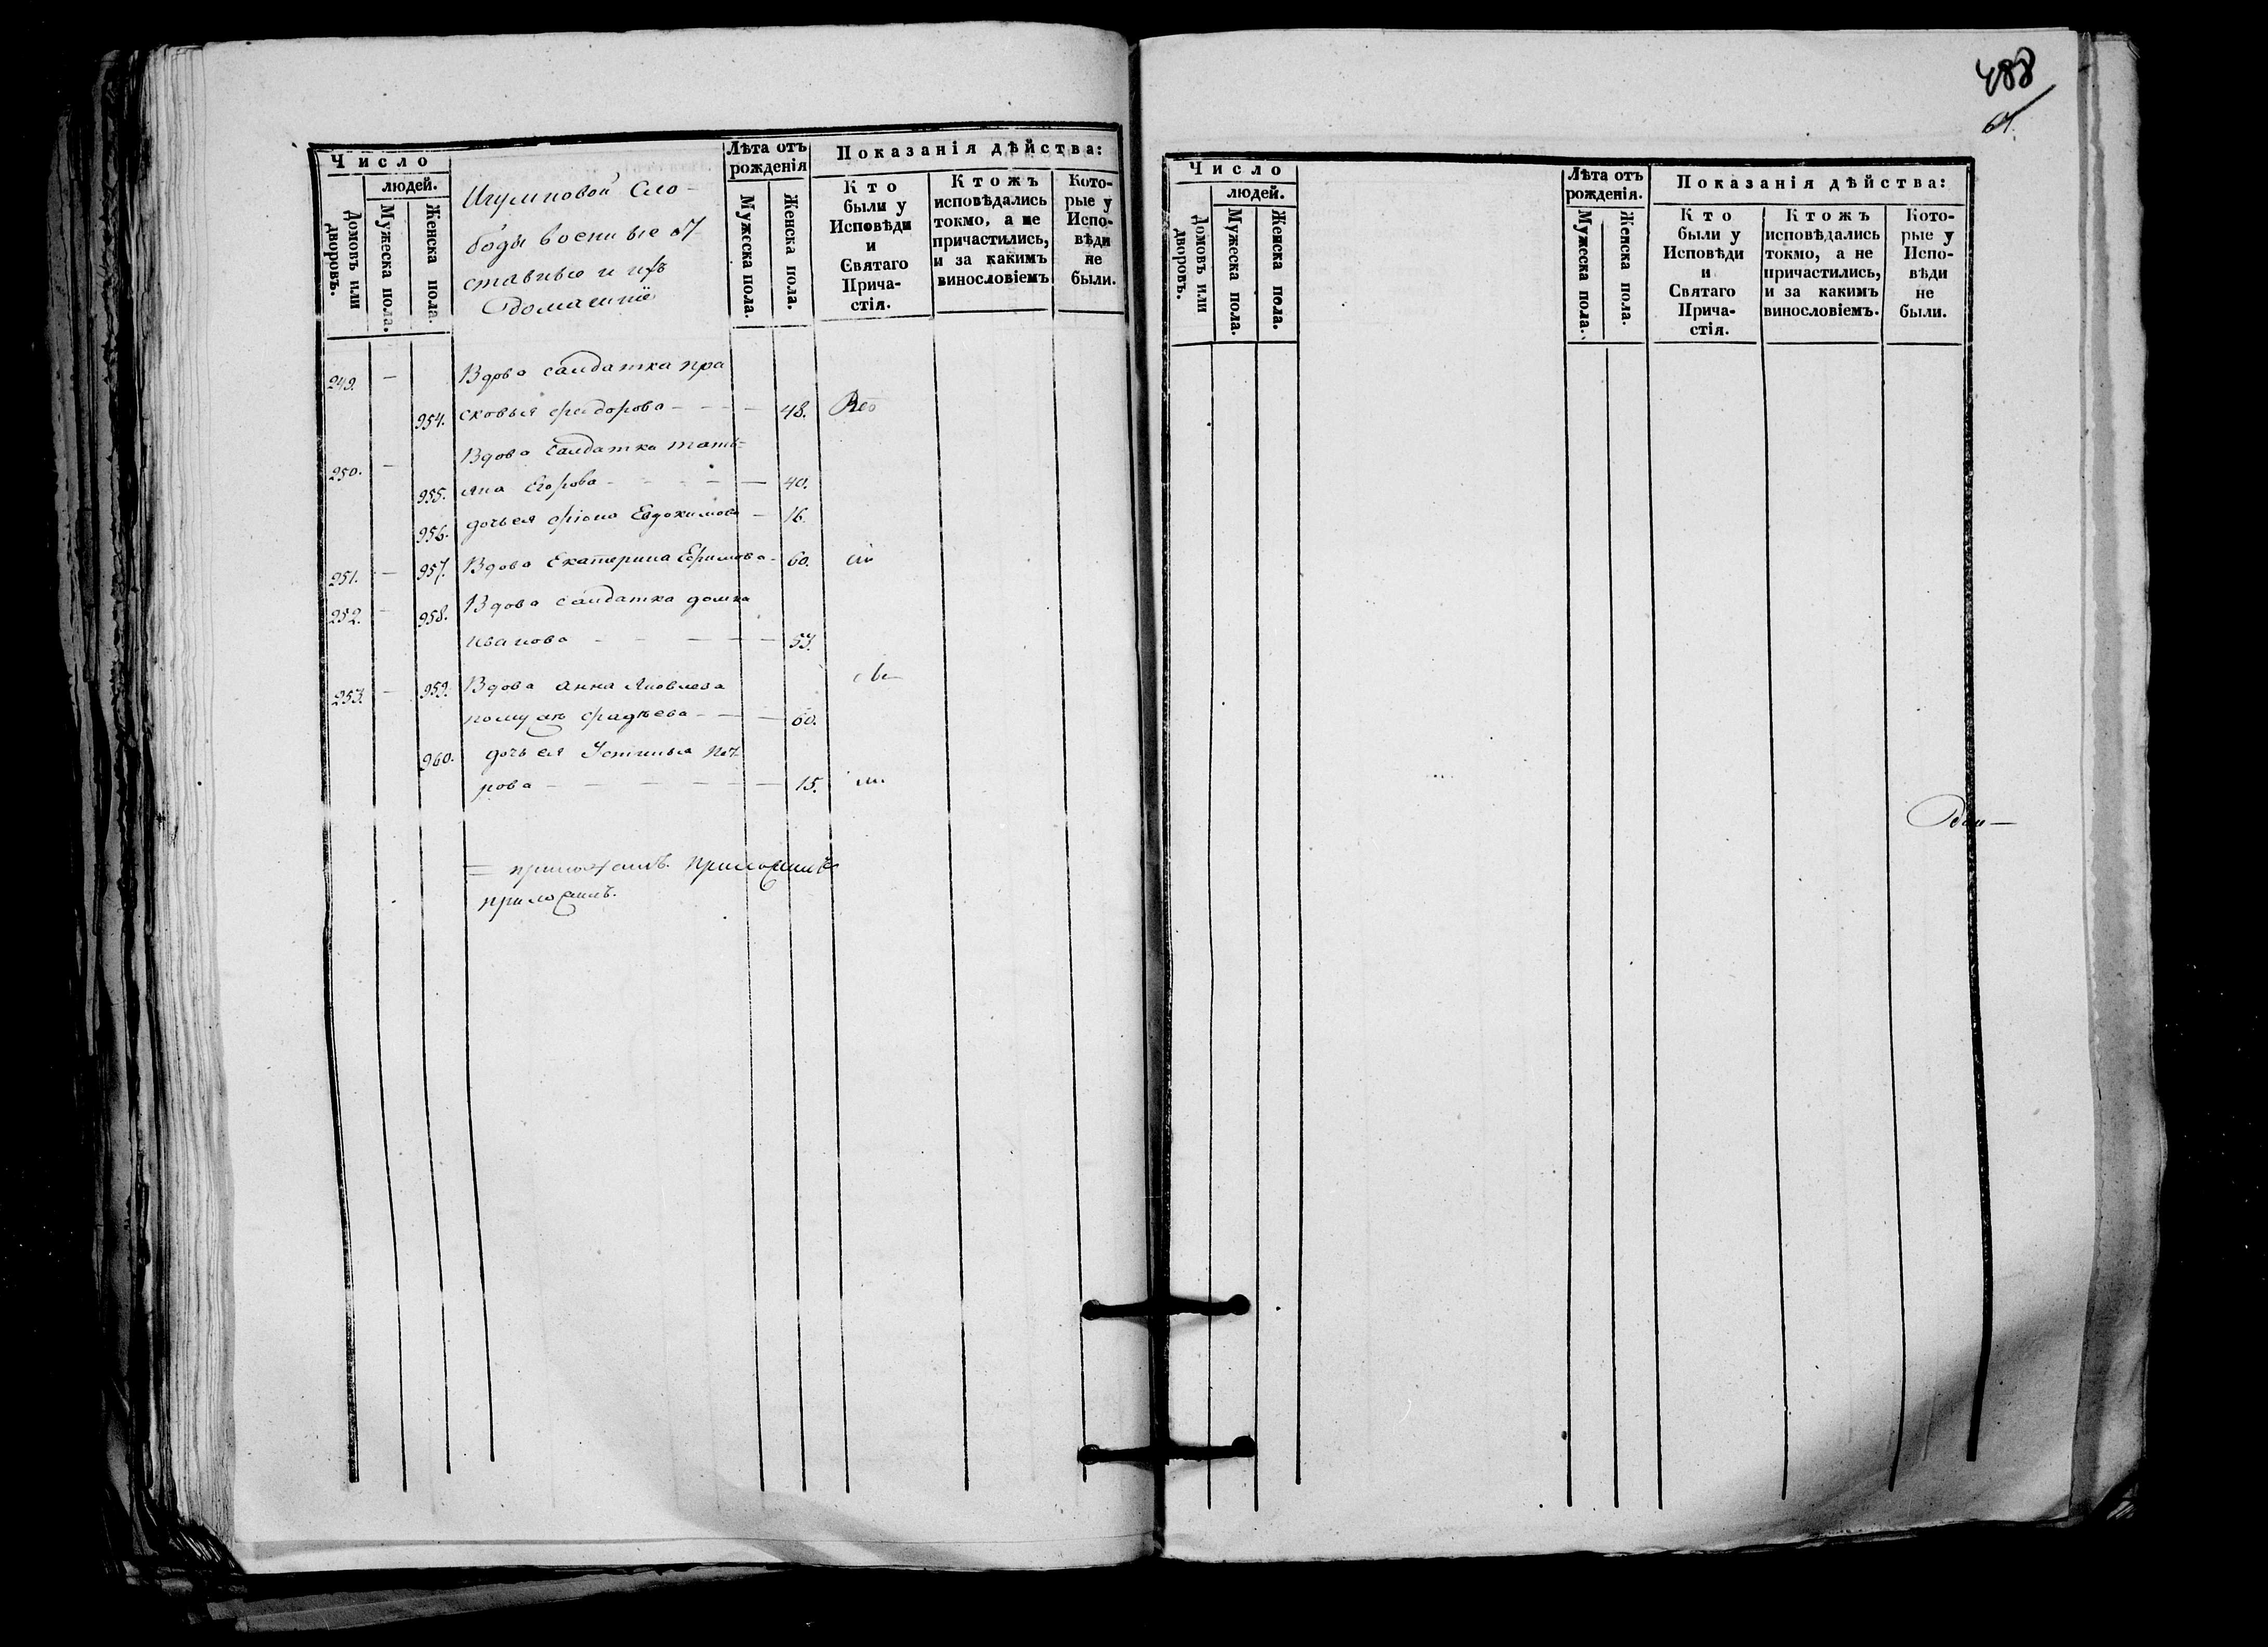 Число
людей.
Домовъ или дворовъ.
Мужеска пола.
Женска пола.
Игумновой Сло-
боды военные от
ставные и ихъ
домашніе
Лѣта отъ
рожденія
Мужеска пола.
Женска пола.
Показанія дѣйства:
Кто
были у
Исповѣди
и
Святаго
Прича-
стія.
Ктожъ
исповѣдались
токмо, а не
причастились,
и за какимъ
винословіемъ
Кото-
рые у
Испо-
вѣди
не
были.
249. — Вдова салдатка пра
954. сковья федорова — — — 48.
250. — Вдова салдатка тать=
955. яна Егорова — — — 40.
956. дочь ея Евдокимова — 16.
251. — 957. Вдова Екатерина Ефимова — 60.
252. — 958. Вдова салдатка домна
иванова — — — — 57.
253. — 959. Вдова анна Яковлева
фадѣева — — — 60.
960. дочь ея Устинья пет
рова — — — — — 15.
488
61.
Число
людей.
Домовъ или дворовъ.
Мужеска пола.
Женска пола.
Лѣта отъ
рожденія.
Мужеска пола.
Женска пола.
Показанія дѣйства:
Кто
были у
Исповѣди
и
Святаго
Прича-
стія.
Ктожъ
исповѣдались
токмо, а не
причастились,
и за какимъ
винословіемъ.
Кото-
рые у
Испо-
вѣди
не
были.